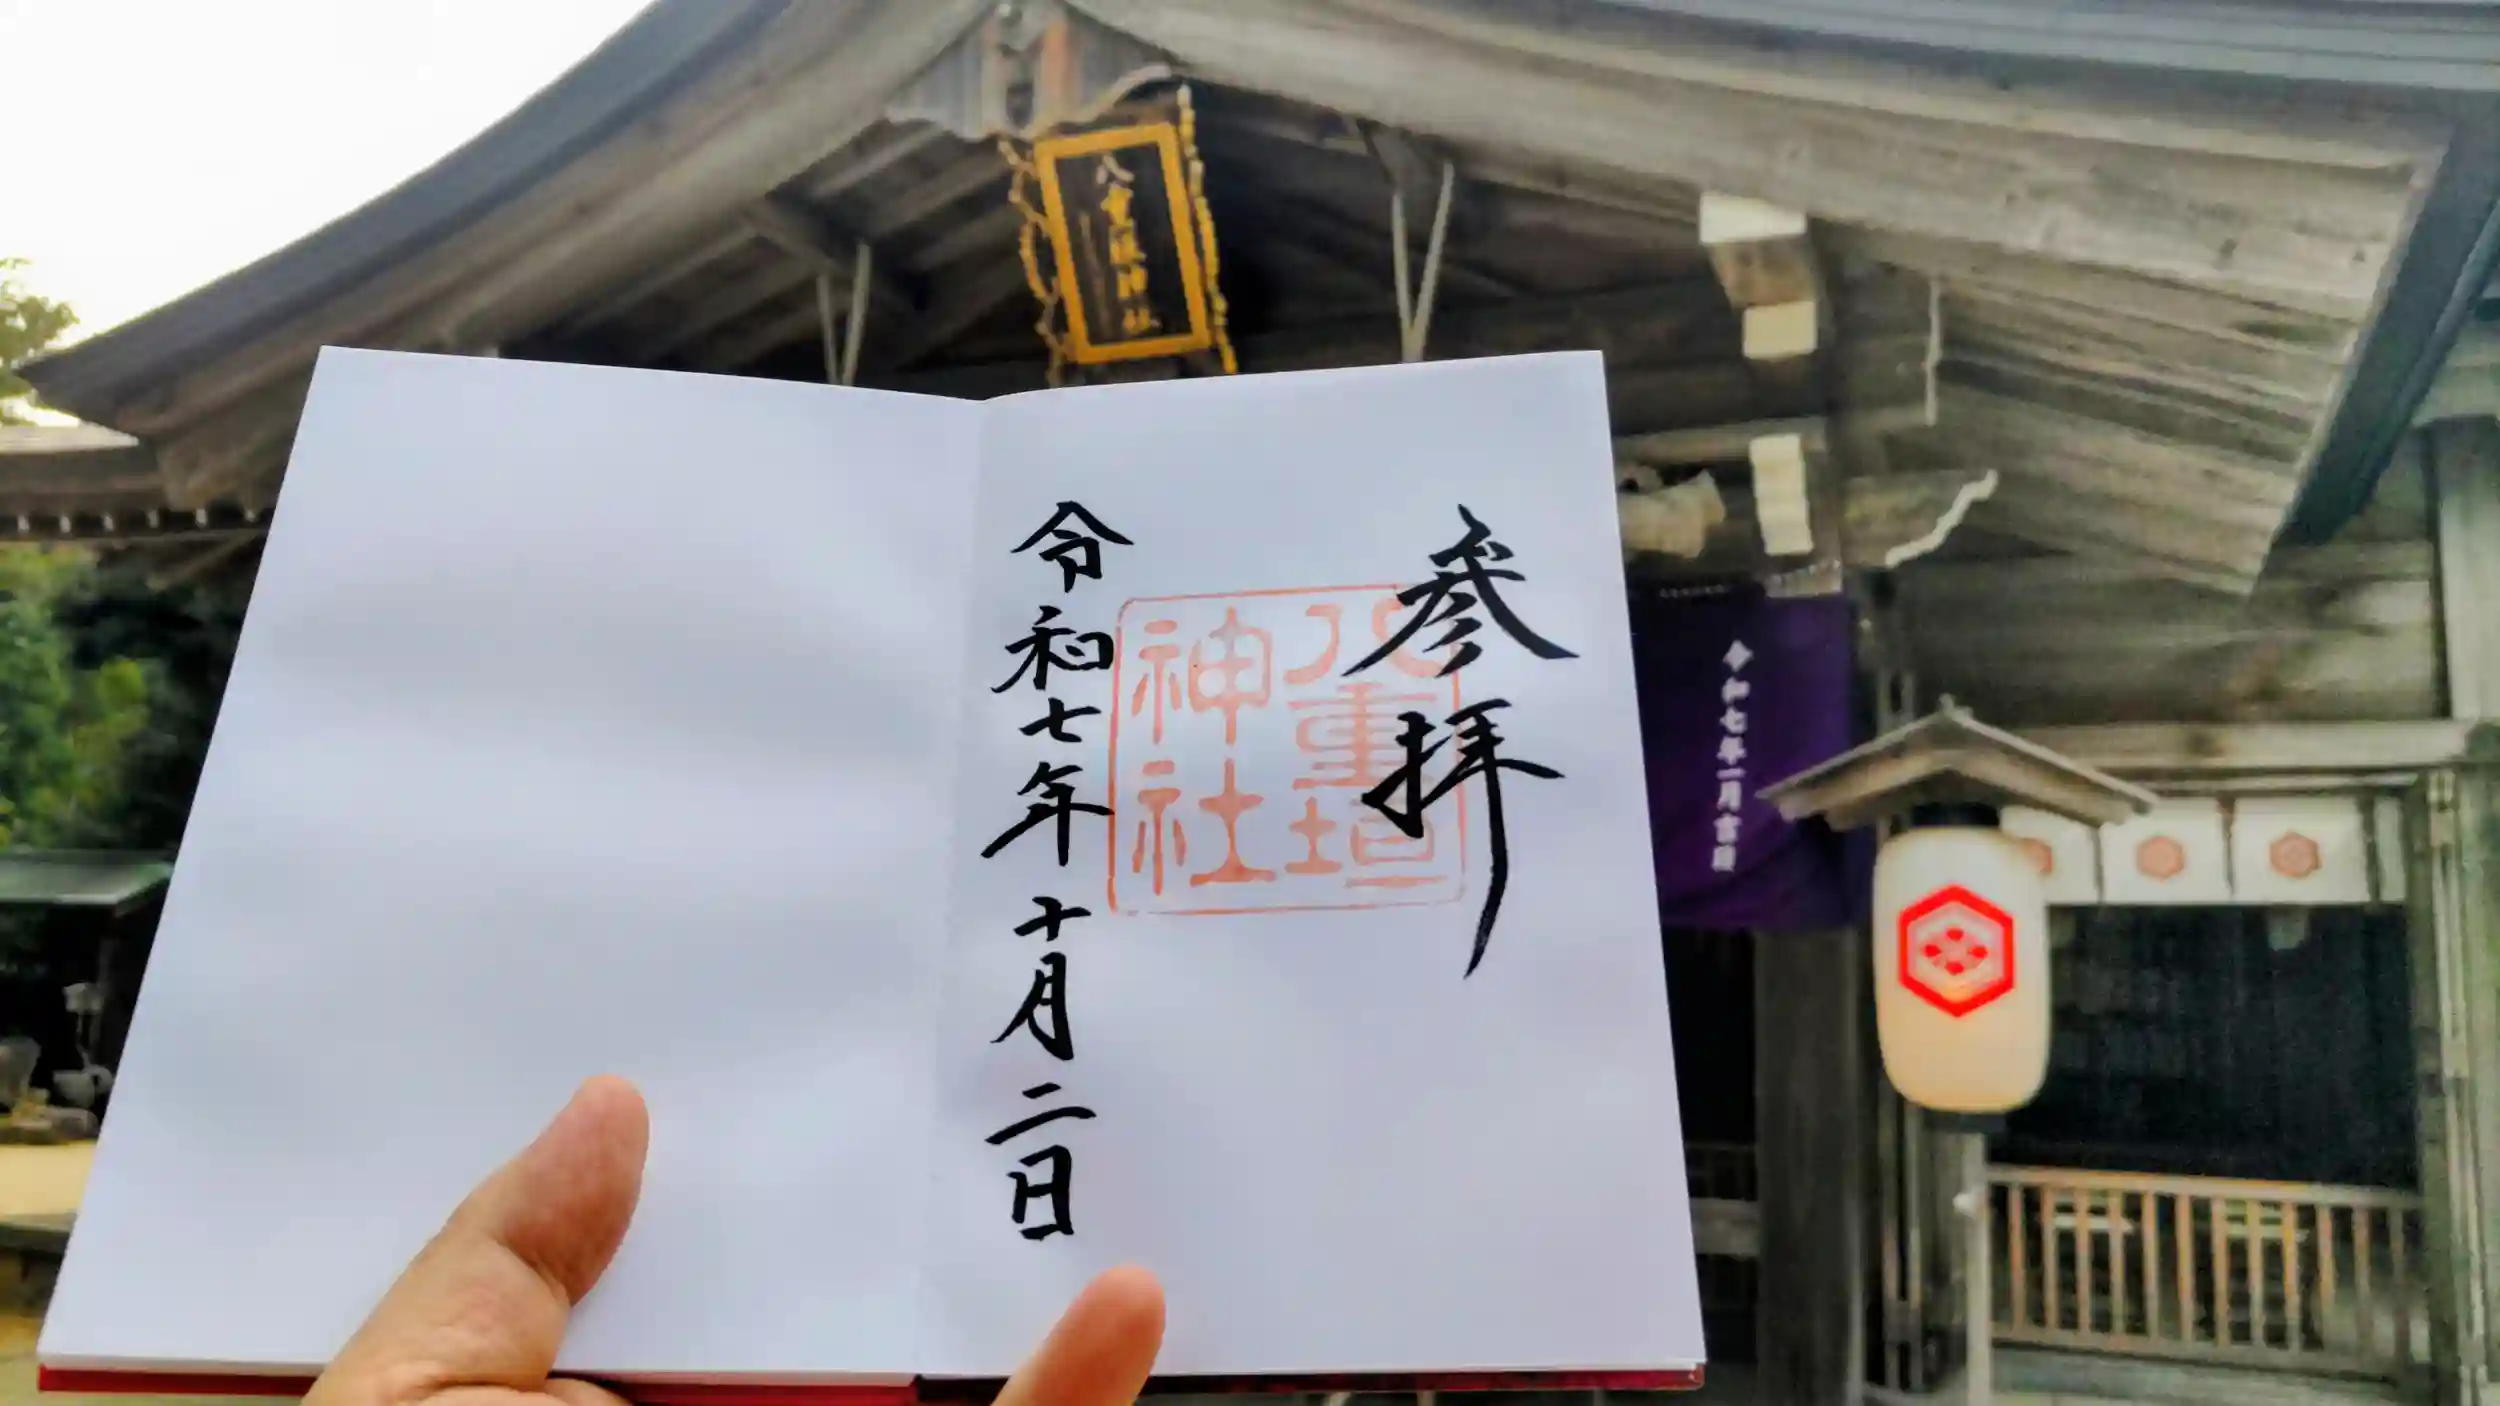 八重垣神社
参拝
八重垣
神社
令和七年十月二日
令和七年一月吉日